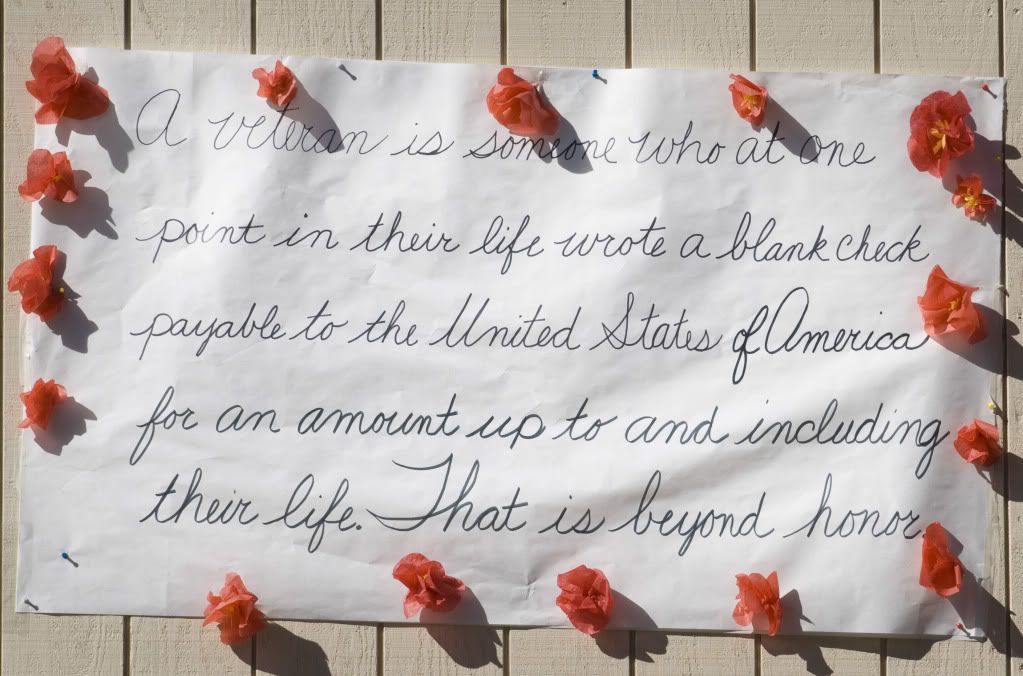 A veteran is someone who at one
point in their life wrote a blank check
payable to the United States of America
for an amount up to and including
their life. That is beyond honor.